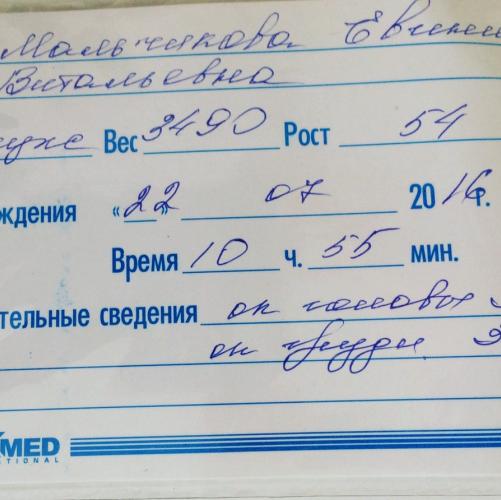 Мальчикова Евгени
Витальевна
Вес 3490 Рост 54
ждения «22» 07 2016г.
Время 10 ч. 55 мин.
тельные сведения ок головы 3
ок груди 3
MED
TIONAL